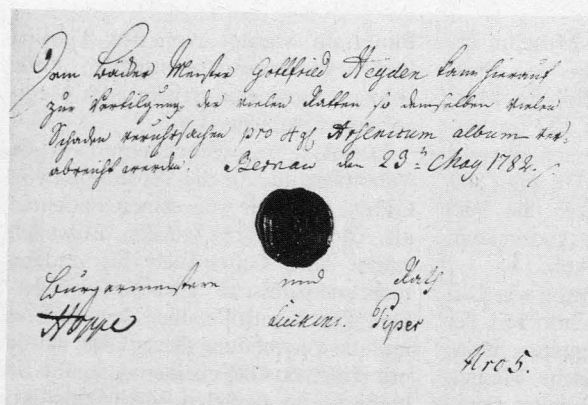 Dem Bäcker Meister Gottfried Heyden kann hierauf
zur Vertilgung der vielen Ratten so demselben vielen
Schaden veruhrsachen pro 4 gl Arsenicum album ver-
abreicht werden. Bernau den 23n May 1782.
Bürgermeistere und Rath
Hoppe Lückens. Pyper
Nro 5.